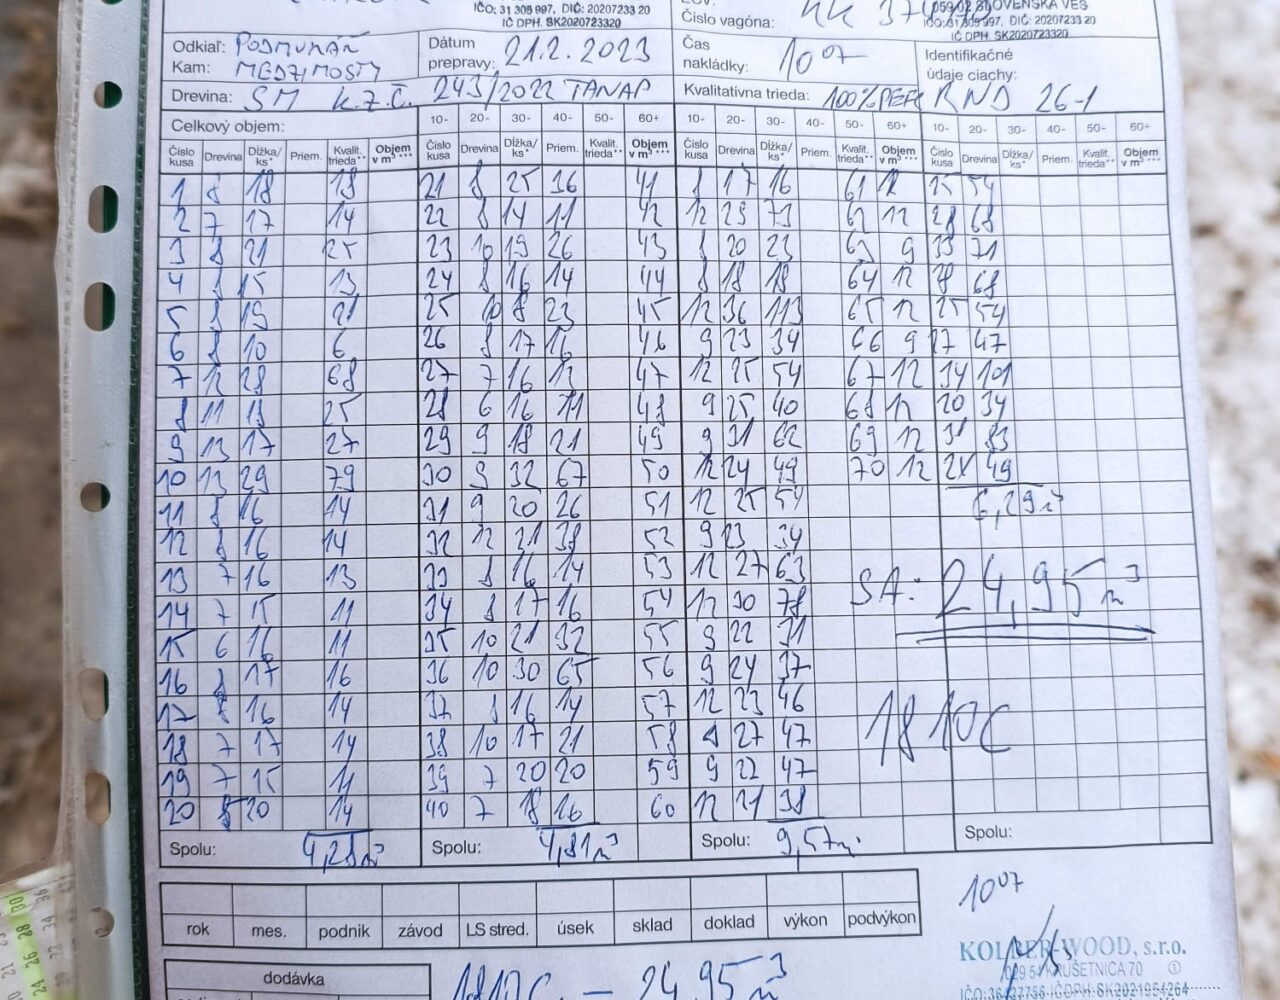 IČO: 31 305 997, DIČ: 20207233 20
IČ DPH. SK2020723320
Číslo vagóna:
059 02 SLOVENSKÁ VES
IČO: 31 305 997, DIČ: 20207233 20
IČ DPH. SK2020723320
Odkiaľ: PODMURÁŇ
Kam: MEDZIMOSTY
Dátum prepravy: 21.2.2023
Čas nakládky: 10 07
Identifikačné údaje ciachy: RND 26-1
Drevina: SM K.Z.Č. 243/2022 TANAP
Kvalitatívna trieda: 100%PEFC
Celkový objem:
10- 20- 30- 40- 50- 60+ 10- 20- 30- 40- 50- 60+ 10- 20- 30- 40- 50- 60+
Číslo kusa Drevina Dĺžka/ks* Priem. Kvalit. trieda** Objem v m³*** Číslo kusa Drevina Dĺžka/ks* Priem. Kvalit. trieda** Objem v m³*** Číslo kusa Drevina Dĺžka/ks* Priem. Kvalit. trieda** Objem v m³*** Číslo kusa Drevina Dĺžka/ks* Priem. Kvalit. trieda** Objem v m³***
1 8 18 18 21 8 25 36 41 8 17 16 61 12 25 54
2 7 17 14 22 8 14 11 42 12 29 73 62 12 28 68
3 8 21 25 23 10 19 26 43 8 20 23 63 9 33 71
4 8 15 13 24 8 16 14 44 8 18 18 64 12 28 68
5 8 19 21 25 10 8 23 45 12 36 113 65 12 25 54
6 8 10 6 26 8 17 16 46 9 23 34 66 9 27 47
7 12 28 68 27 7 16 13 47 12 25 54 67 12 34 101
8 11 18 25 28 6 16 11 48 9 25 40 68 12 20 34
9 13 17 27 29 9 18 21 49 9 31 62 69 12 31 83
10 13 29 79 30 9 32 67 50 12 24 49 70 12 24 49
11 8 16 14 31 9 20 26 51 12 25 54 6,29 m³
12 8 16 14 32 12 21 38 52 9 23 34
13 7 16 13 33 8 16 14 53 12 27 63 SA: 24,95 m³
14 7 15 11 34 8 17 16 54 12 30 78
15 6 16 11 35 10 21 32 55 9 22 31
16 8 17 16 36 10 30 65 56 9 24 37
17 8 16 14 37 8 16 14 57 12 23 46 1810C
18 7 17 14 38 10 17 21 58 27 47
19 7 15 11 39 7 20 20 59 9 22 47
20 8 20 14 40 7 18 16 60 12 21 38
Spolu: 4,28 m³ Spolu: 4,81 m³ Spolu: 9,57 m³ Spolu:
rok mes. podnik závod LS stred. úsek sklad doklad výkon podvýkon
10 07
KOLBER-WOOD, s.r.o.
029 54 KRUŠETNICA 70
IČO: 36427756 IČDPH: SK2021954264
dodávka
1810C - 24,95 m³